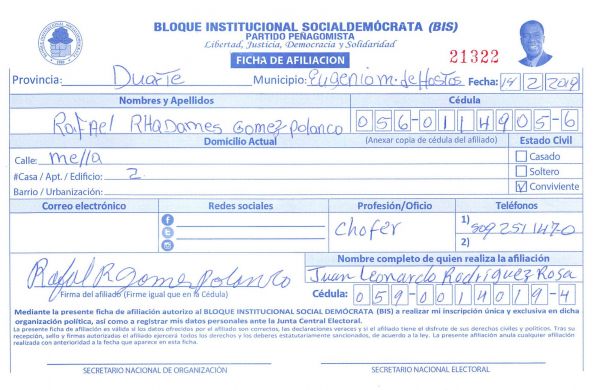 BLOQUE INSTITUCIONAL SOCIALDEMÓCRATA (BIS)
PARTIDO PEÑAGOMISTA
Libertad, Justicia, Democracia y Solidaridad
FICHA DE AFILIACION 21322
Provincia: Duarte Municipio: Eugenio M. de Hostos Fecha: 14/2/2019
Nombres y Apellidos Cédula
Rafael RHadames Gomez Polanco 056-0114905-6
Domicilio Actual (Anexar copia de cédula del afiliado) Estado Civil
Calle: mella Casado
#Casa / Apt. / Edificio: 2 Soltero
Barrio / Urbanización: Conviviente
Correo electrónico Redes sociales Profesión/Oficio Teléfonos
chofer 1) 809 251 1470
2)
Rafael R Gomez Polanco
Nombre completo de quien realiza la afiliación
Juan Leonardo Rodríguez Rosa
Firma del afiliado (Firme igual que en la Cédula) Cédula: 059-0014019-4
Mediante la presente ficha de afiliación autorizo al BLOQUE INSTITUCIONAL SOCIAL DEMÓCRATA (BIS) a realizar mi inscripción única y exclusiva en dicha
organización política, así como a registrar mis datos personales ante la Junta Central Electoral.
La presente ficha de afiliación es válida si los datos ofrecidos por el afiliado son correctos, las declaraciones veraces y si el afiliado tiene el disfrute de sus derechos civiles y políticos. Tras su
recepción, sello y firmas autorizadas el afiliado ejercerá todos los derechos y los deberes estatutariamente sancionados, de acuerdo a la ley. La presente afiliación anula cualquier afiliación
realizada con anterioridad a la fecha que aparece en esta ficha.
SECRETARIO NACIONAL DE ORGANIZACIÓN SECRETARIO NACIONAL ELECTORAL